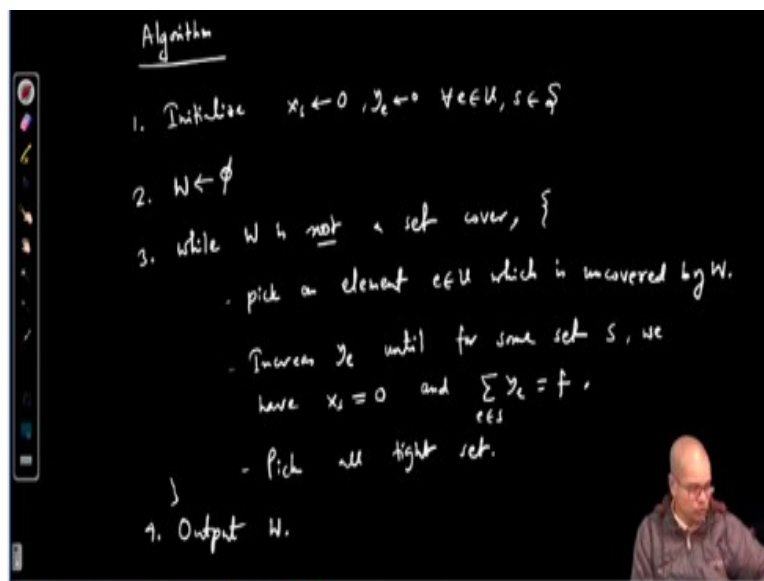 Algorithm
1. Initialize x_s ← 0, y_e ← 0 ∀e∈U, s∈S
2. W ← φ
3. while W is not a set cover, {
- pick an element e∈U which is uncovered by W.
- Increase y_e until for some set S, we
have x_s = 0 and Σ_{e∈S} y_e = f.
- Pick all tight set.
}
4. Output W.